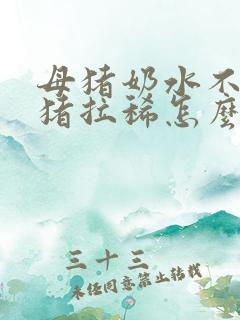 母猪奶水不
猪拉稀怎麽
三十三
未经同意禁止转载